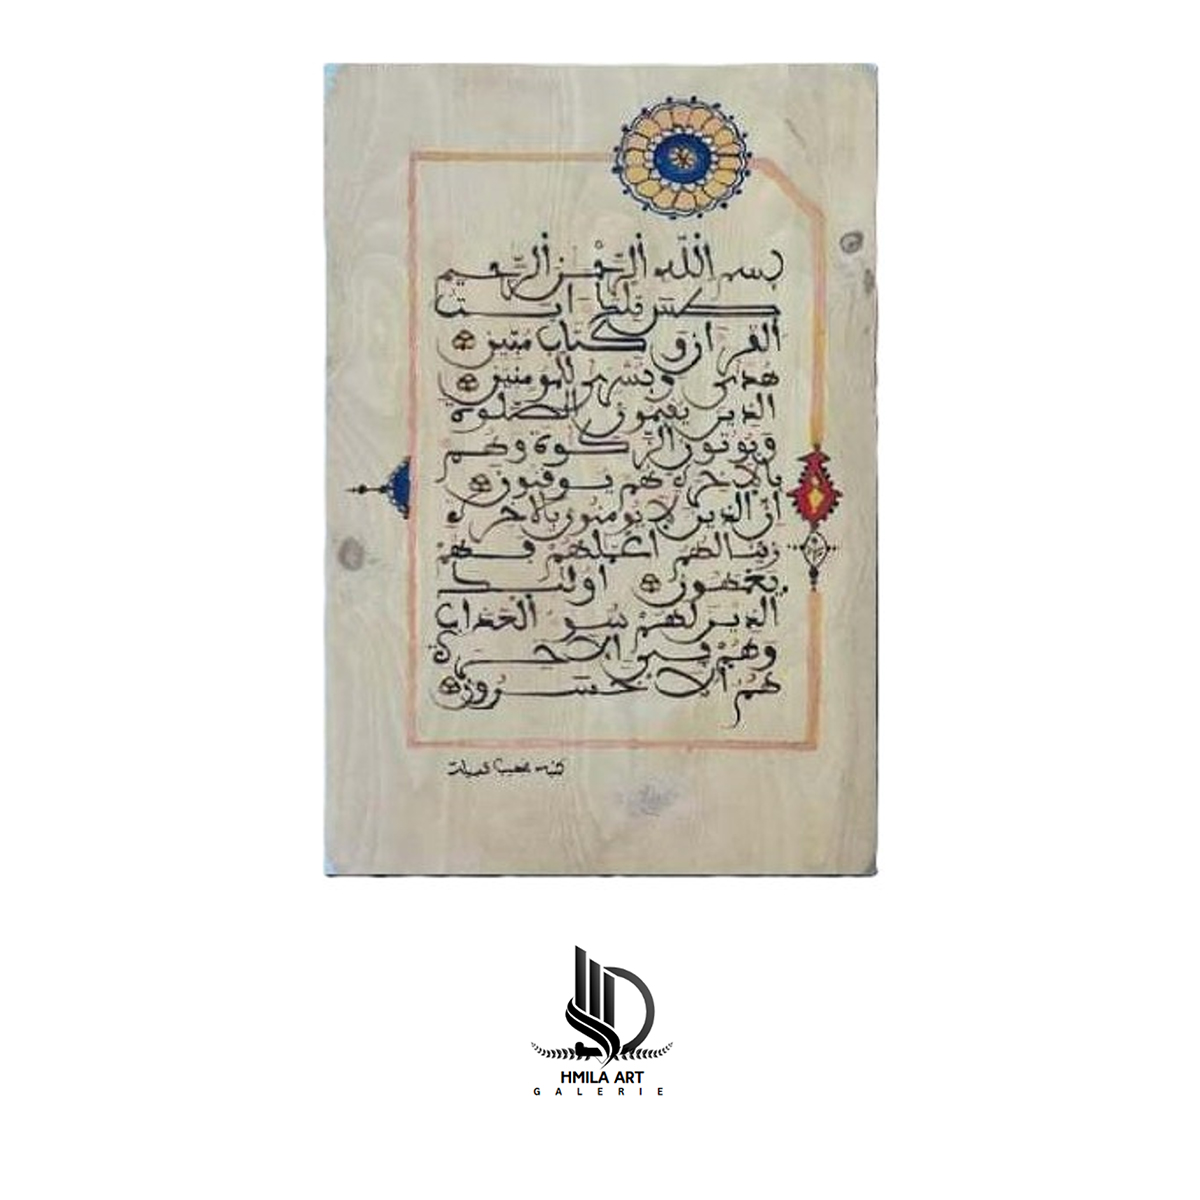 بسم الله الرحمن الرحيم
طس تلك ءايت
القرءان وكتاب مبين
هدى وبشرى للمومنين
الذين يقيمون الصلوة
ويوتون الزكوة وهم
بالاخرة هم يوقنون
ان الذين لا يومنون بالاخرة
زينا لهم اعملهم فهم
يعمهون اولئك
الذين لهم سوء العذاب
وهم في الاخرة
هم الاخسرون
كتبه
HMILA ART
GALERIE